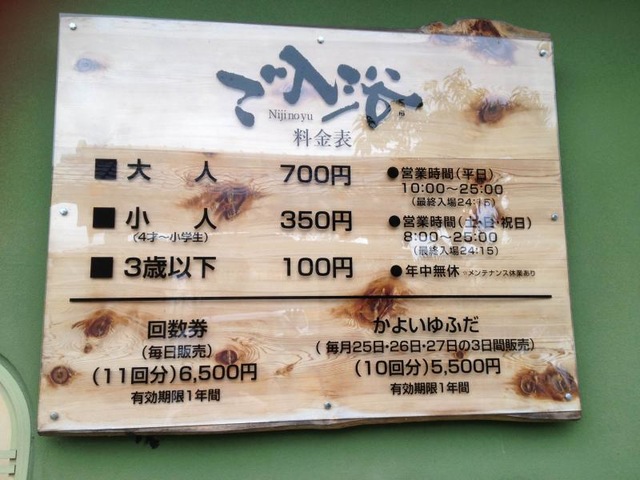 ご入浴
Nijinoyu
料金表
■ 大 人 700円
■ 小 人 350円
(4才～小学生)
■ 3歳以下 100円
●営業時間(平日)
10:00～25:00
(最終入場24:15)
●営業時間(土・日・祝日)
8:00～25:00
(最終入場24:15)
●年中無休 ※メンテナンス休業あり
回数券
(毎日販売)
(11回分)6,500円
有効期限1年間
かよいゆふだ
(毎月25日・26日・27日の3日間販売)
(10回分)5,500円
有効期限1年間